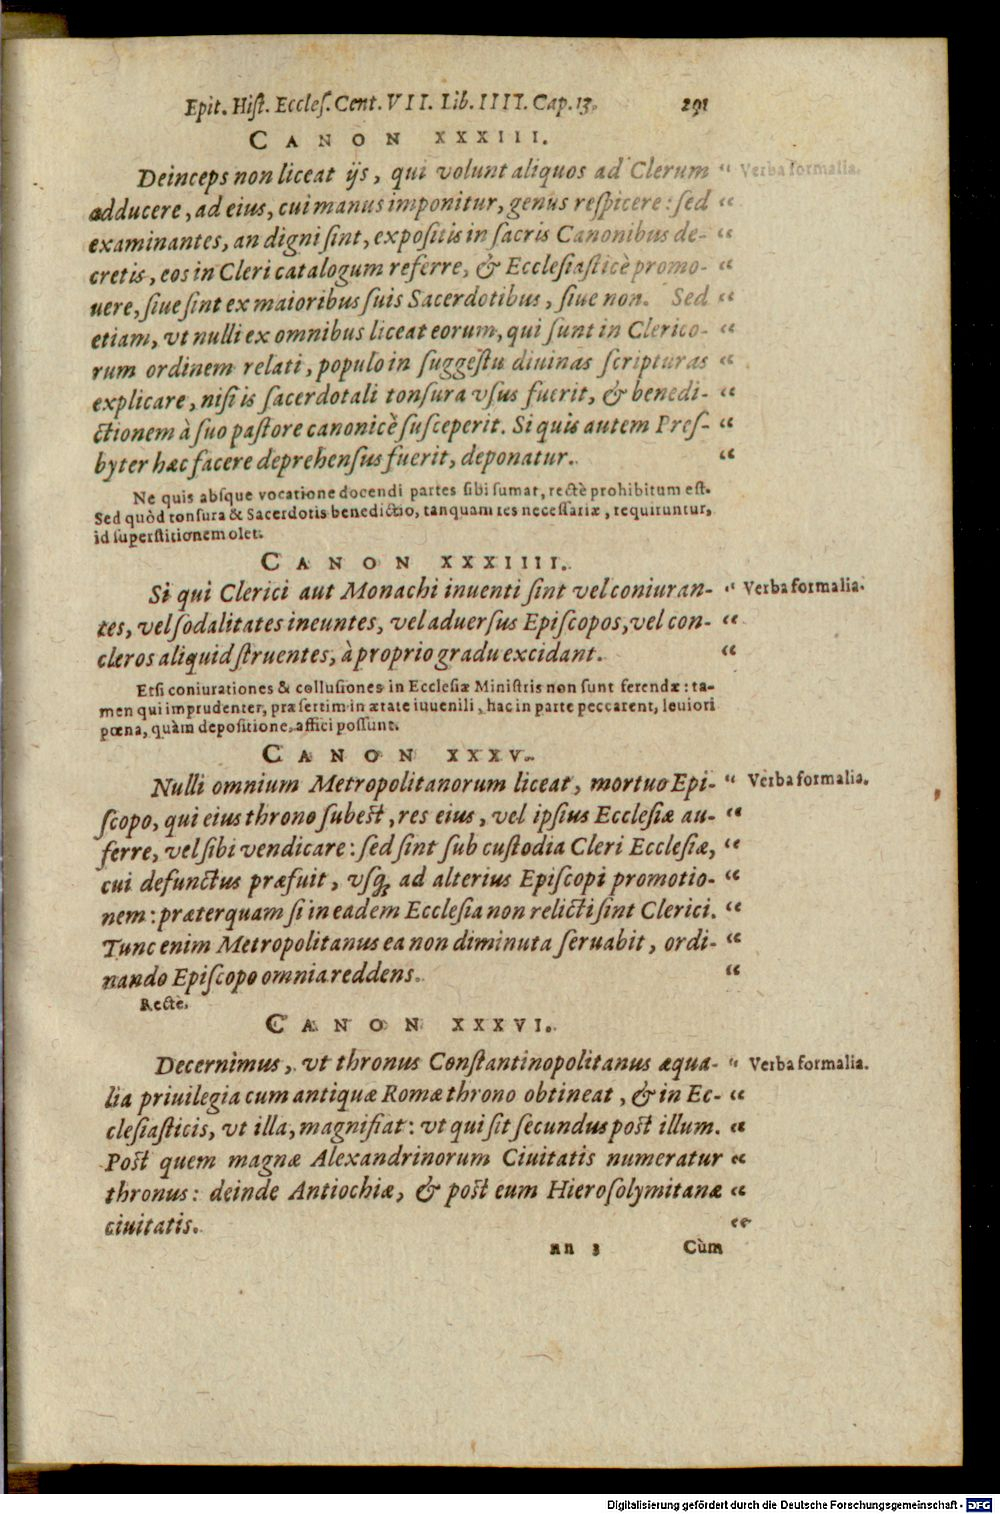 Epit. Hiſt. Eccleſ. Cent. VII. Lib. IIII. Cap. 13. 291
CANON XXXIII.
Deinceps non liceat ijs, qui volunt aliquos ad Clerum “ Verba formalia.
adducere, ad eius, cui manus imponitur, genus reſpicere: ſed “
examinantes, an digni ſint, expoſitis in ſacris Canonibus de- “
cretis, eos in Cleri catalogum referre, & Eccleſiaſticè promo- “
uere, ſiue ſint ex maioribus ſuis Sacerdotibus, ſiue non. Sed “
etiam, vt nulli ex omnibus liceat eorum, qui ſunt in Clerico- “
rum ordinem relati, populo in ſuggeſtu diuinas ſcripturas “
explicare, niſi is ſacerdotali tonſura vſus fuerit, & benedi- “
ctionem à ſuo paſtore canonicè ſuſceperit. Si quis autem Preſ- “
byter hæc facere deprehenſus fuerit, deponatur. “
Ne quis abſque vocatione docendi partes ſibi ſumat, rectè prohibitum eſt.
Sed quòd tonſura & Sacerdotis benedictio, tanquam res neceſſariæ, requiruntur,
id ſuperſtitionem olet.
CANON XXXIIII.
Si qui Clerici aut Monachi inuenti ſint vel coniuran- “ Verba formalia.
tes, vel ſodalitates ineuntes, vel aduerſus Epiſcopos, vel con- “
cleros aliquid ſtruentes, à proprio gradu excidant. “
Etſi coniurationes & colluſiones in Eccleſiæ Miniſtris non ſunt ferendæ: ta-
men qui imprudenter, præſertim in ætate iuuenili, hac in parte peccarent, leuiori
pœna, quàm depoſitione, affici poſſunt.
CANON XXXV.
Nulli omnium Metropolitanorum liceat, mortuo Epi- “ Verba formalia.
ſcopo, qui eius throno ſubeſt, res eius, vel ipſius Eccleſiæ au- “
ferre, vel ſibi vendicare: ſed ſint ſub cuſtodia Cleri Eccleſiæ, “
cui defunctus præfuit, vſq; ad alterius Epiſcopi promotio- “
nem: præterquam ſi in eadem Eccleſia non relicti ſint Clerici. “
Tunc enim Metropolitanus ea non diminuta ſeruabit, ordi- “
nando Epiſcopo omnia reddens. “
Rectè.
CANON XXXVI.
Decernimus, vt thronus Conſtantinopolitanus æqua- “ Verba formalia.
lia priuilegia cum antiquæ Romæ throno obtineat, & in Ec- “
cleſiaſticis, vt illa, magnifiat: vt qui ſit ſecundus poſt illum. “
Poſt quem magnæ Alexandrinorum Ciuitatis numeratur “
thronus: deinde Antiochiæ, & poſt eum Hieroſolymitanæ “
ciuitatis. “
nn 3 Cùm
Digitalisierung gefördert durch die Deutsche Forschungsgemeinschaft - DFG